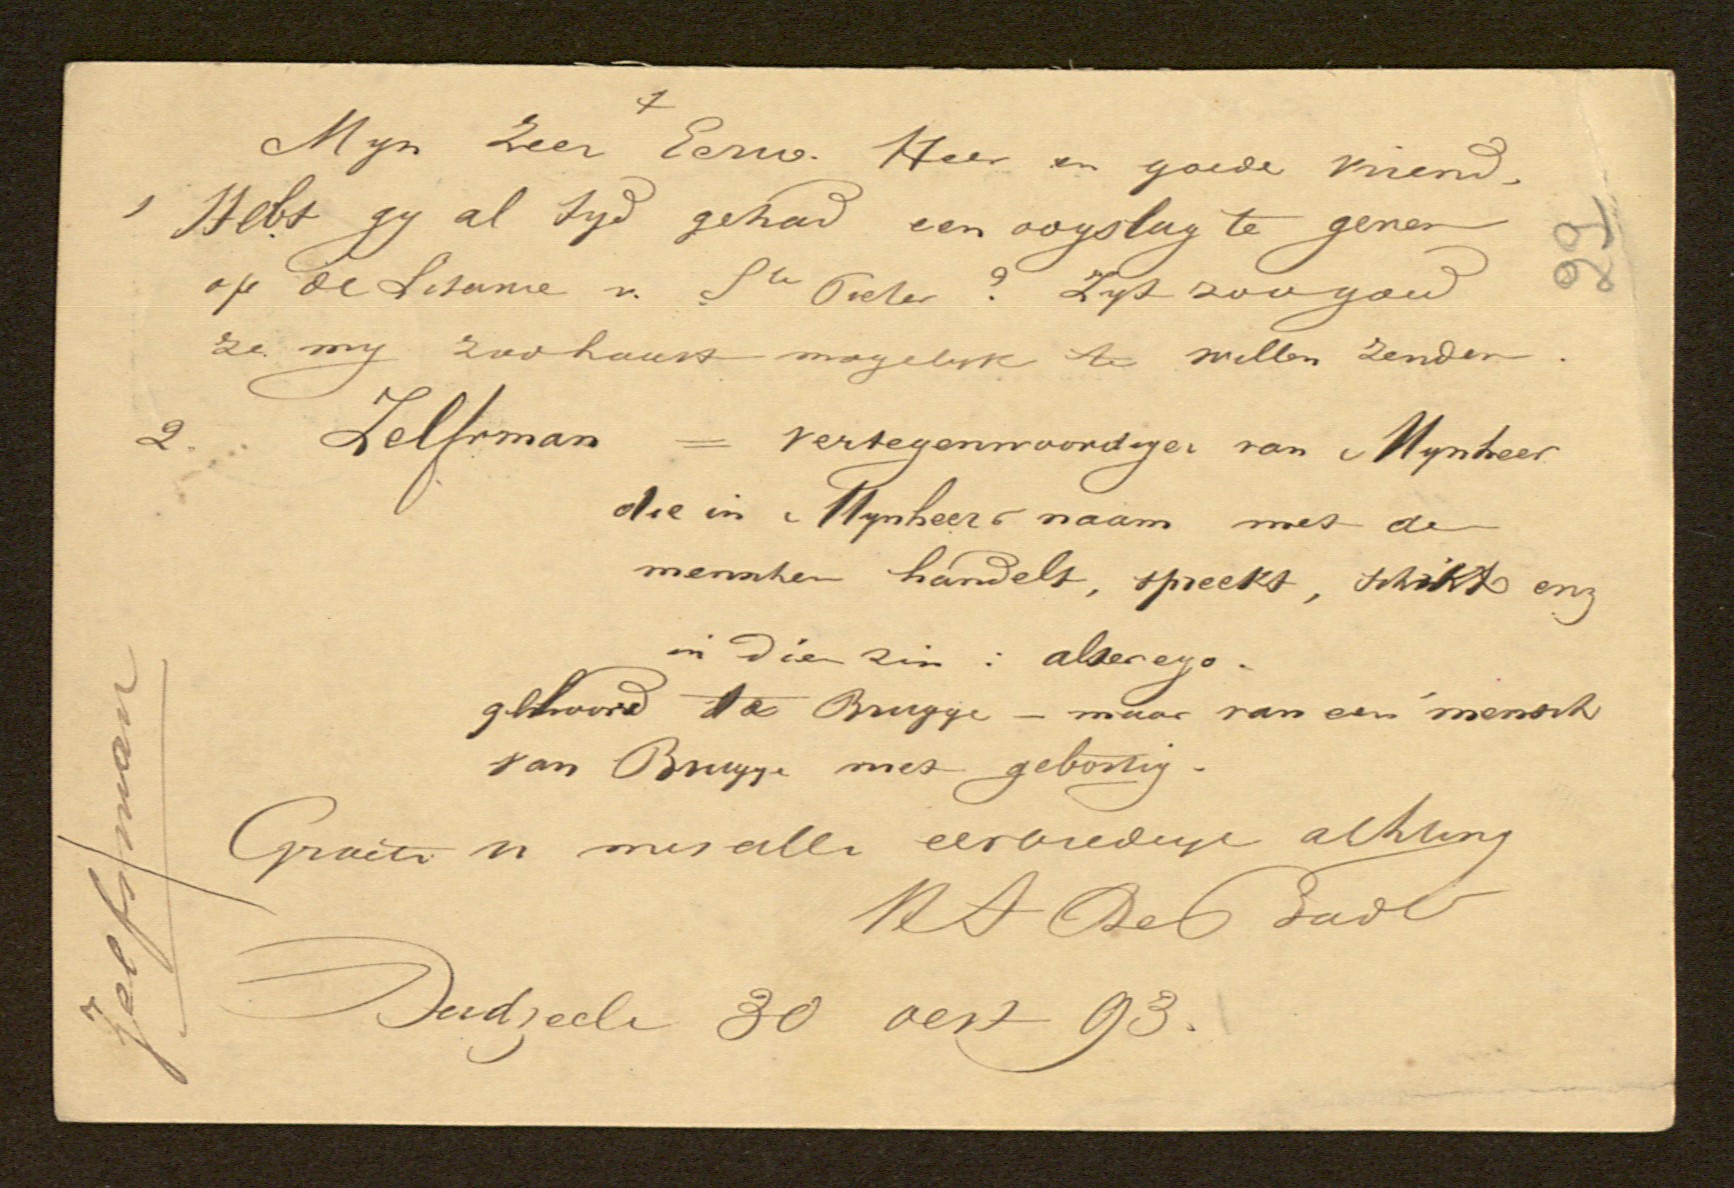 +
Myn zeer Eerw. Heer en goede vriend,
1 Hebt gy al tyd gehad een oogslag te geven
op de Litanie v. Ste Pieter? Zyt zoo goed
ze my zoohaast mogelyk te willen zenden.
2. Zelfsman = vertegenwoordiger van Mynheer
die in Mynheers naam met de
menschen handelt, spreekt, schikt enz
in dien zin: alter ego.
gehoord te Brugge – maar van een mensch
van Brugge niet gebortig.
Groete u met alle eerbiedige achting
De
Dudzeele 30 oest 93.
Zelfsman